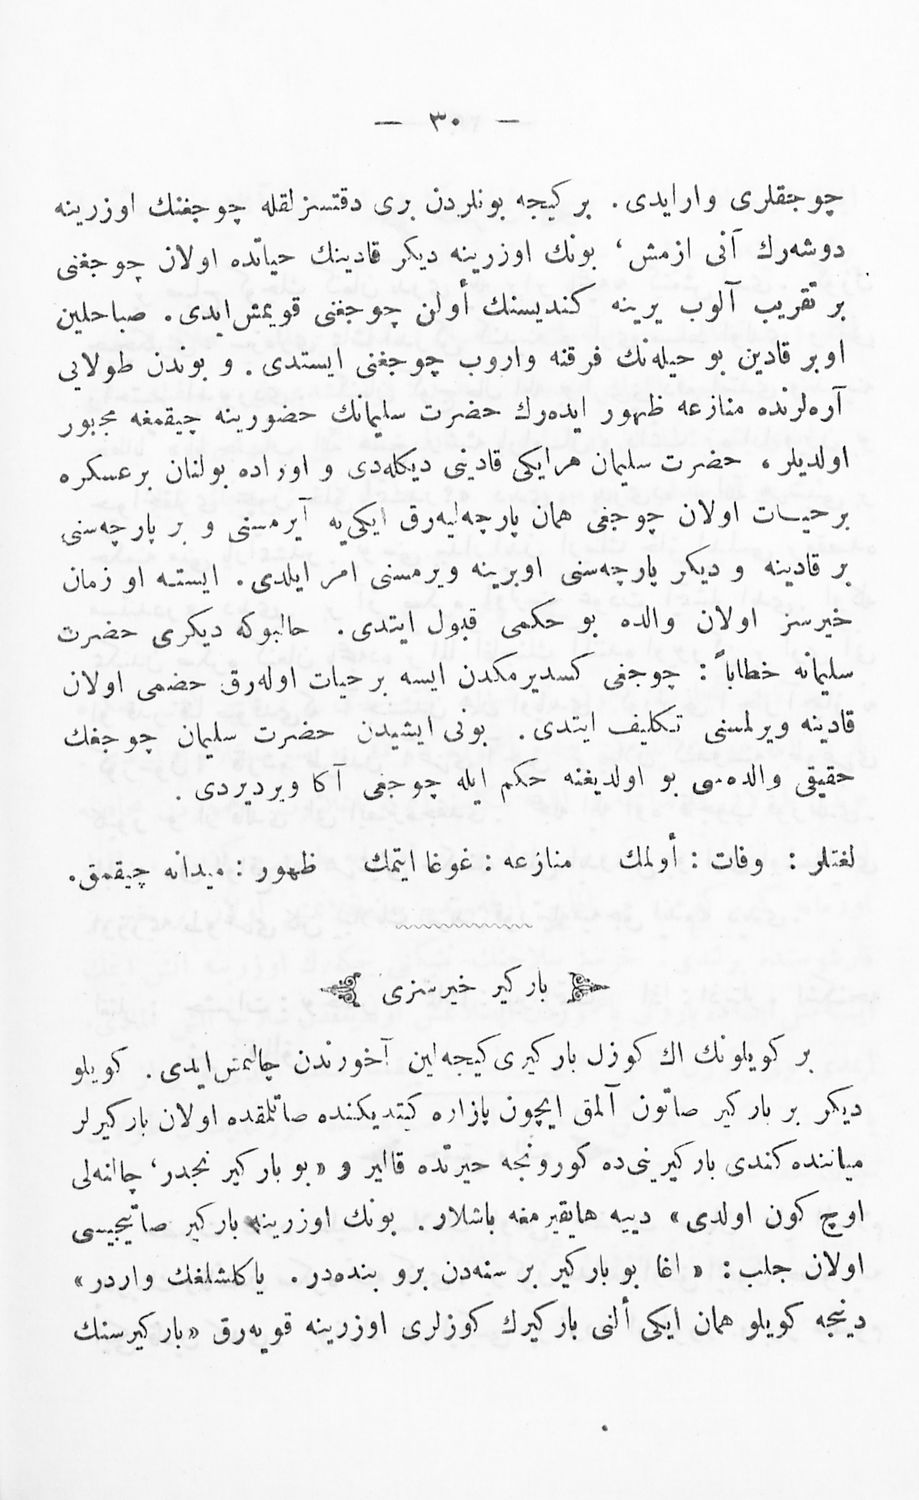 — ٣٠ —
چوجقلری وارایدی. بر كیجه بونلردن بری دقتسزلقله چوجغنك اوزرینه
دوشه‌رك آنی ازمش، بونك اوزرینه دیكر قادینك حیاتده اولان چوجغنی
بر تقریب آلوب یرینه كندیسنك أولن چوجغنی قویمش‌ایدی. صباحلین
اوبر قادین بو حیله‌نك فرقنه واروب چوجغنی ایستدی. و بوندن طولایی
آره‌لرنده منازعه ظهور ایده‌رك حضرت سلیمانك حضورینه چیقمغه مجبور
اولدیلر، حضرت سلیمان هرایكی قادینی دیكله‌دی و اوراده بولنان برعسكره
برحیات اولان چوجغی همان پارچه‌لیه‌رق ایكی‌یه آیرمسنی و بر پارچه‌سنی
بر قادینه و دیكر پارچه‌سنی اوبرینه ویرمسنی امر ایلدی. ایسته او زمان
خیرسز اولان والده بو حكمی قبول ایتدی. حالبوكه دیكری حضرت
سلیمانه خطاباً: چوجغی كسدیرمكدن ایسه برحیات اوله‌رق خصمی اولان
قادینه ویرلمسنی تكلیف ایتدی. بونی ایشیدن حضرت سلیمان چوجغك
حقیقی والده‌سی بو اولدیغنه حكم ایله چوجغی آكا ویردیردی.
لغتلر: وفات: أولمك منازعه: غوغا ایتمك ظهور: میدانه چیقمق.
باركیر خیرسزی
بر كویلونك اك كوزل باركیری كیجه‌لین آخورندن چالنمش‌ایدی. كویلو
دیكر بر باركیر صاتون آلمق ایچون پازاره كیتدیكنده صاتلمقده اولان باركیرلر
میاننده كندی باركیرینی‌ده كورونجه حیرتده قالیر و «بو باركیر نجدر، چالنه‌لی
اوچ كون اولدی» دییه هایقیرمغه باشلار. بونك اوزرینه باركیر صاتیجیسی
اولان جلب: «اغا بو باركیر بر سنه‌دن برو بنده‌در. یاكلشلغك واردر»
دینجه كویلو همان ایكی ألنی باركیرك كوزلری اوزرینه قویه‌رق «باركیرسنك